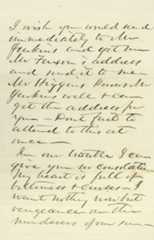 I wish you would send
immediately to Mr
Jenkins and get me
Mr address
and send it to me
Mr Higgins knows Mr
Jenkins well & can
get the address for
you - Dont fail to
attend to this at
once -
In our trouble I can
give you no consolation
My heart is full of
bitterness & curses - I
want nothing now but
vengeance on the
murderers of our son -